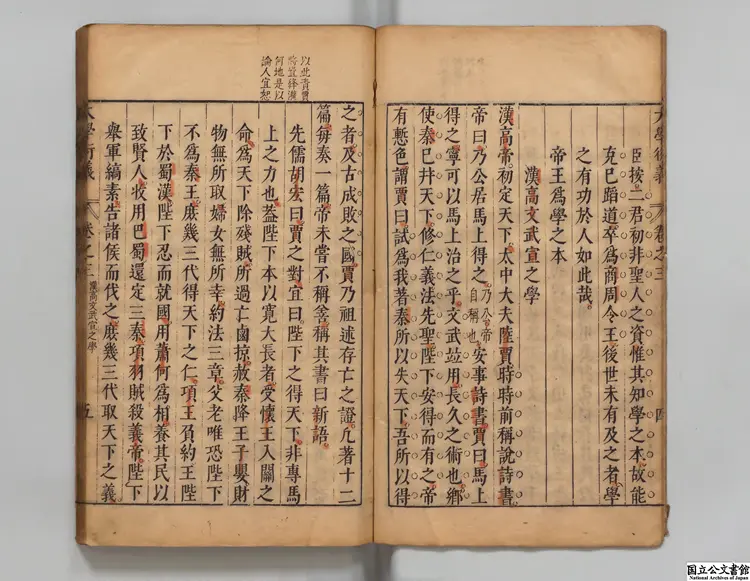 大學衍義 卷之三 四
臣按二君初非聖人之資惟其知學之本故能
克已蹈道卒爲商周令王後世未有及之者學
之有功於人如此哉
帝王爲學之本
漢高文武宣之學
漢高帝初定天下太中大夫陸賈時時前稱說詩書
帝曰乃公居馬上得之乃公帝自稱也安事詩書賈曰馬上
得之寧可以馬上治之乎文武竝用長久之術也鄉
使秦已幷天下修仁義法先聖陛下安得而有之帝
有慙色謂賈曰試爲我著秦所以失天下吾所以得
之者及古成敗之國賈乃祖述存亡之證凡著十二
篇每奏一篇帝未嘗不稱善稱其書曰新語
以此責賈
將置絳灌
何地是以
論人宜恕
先儒胡宏曰賈之對宜曰陛下之得天下非專馬
上之力也蓋陛下本以寬大長者受懷王入關之
命爲天下除殘賊所過亡鹵掠赦秦降王子嬰財
物無所取婦女無所幸約法三章父老唯恐陛下
不爲秦王庶幾三代得天下之仁項王負約王陛
下於蜀漢陛下忍而就國用蕭何爲相養其民以
致賢人收用巴蜀還定三秦項羽賊殺義帝陛下
舉軍縞素告諸侯而伐之庶幾三代取天下之義
大學衍義 卷之三 漢高文武宣之學 五
国立公文書館
National Archives of Japan